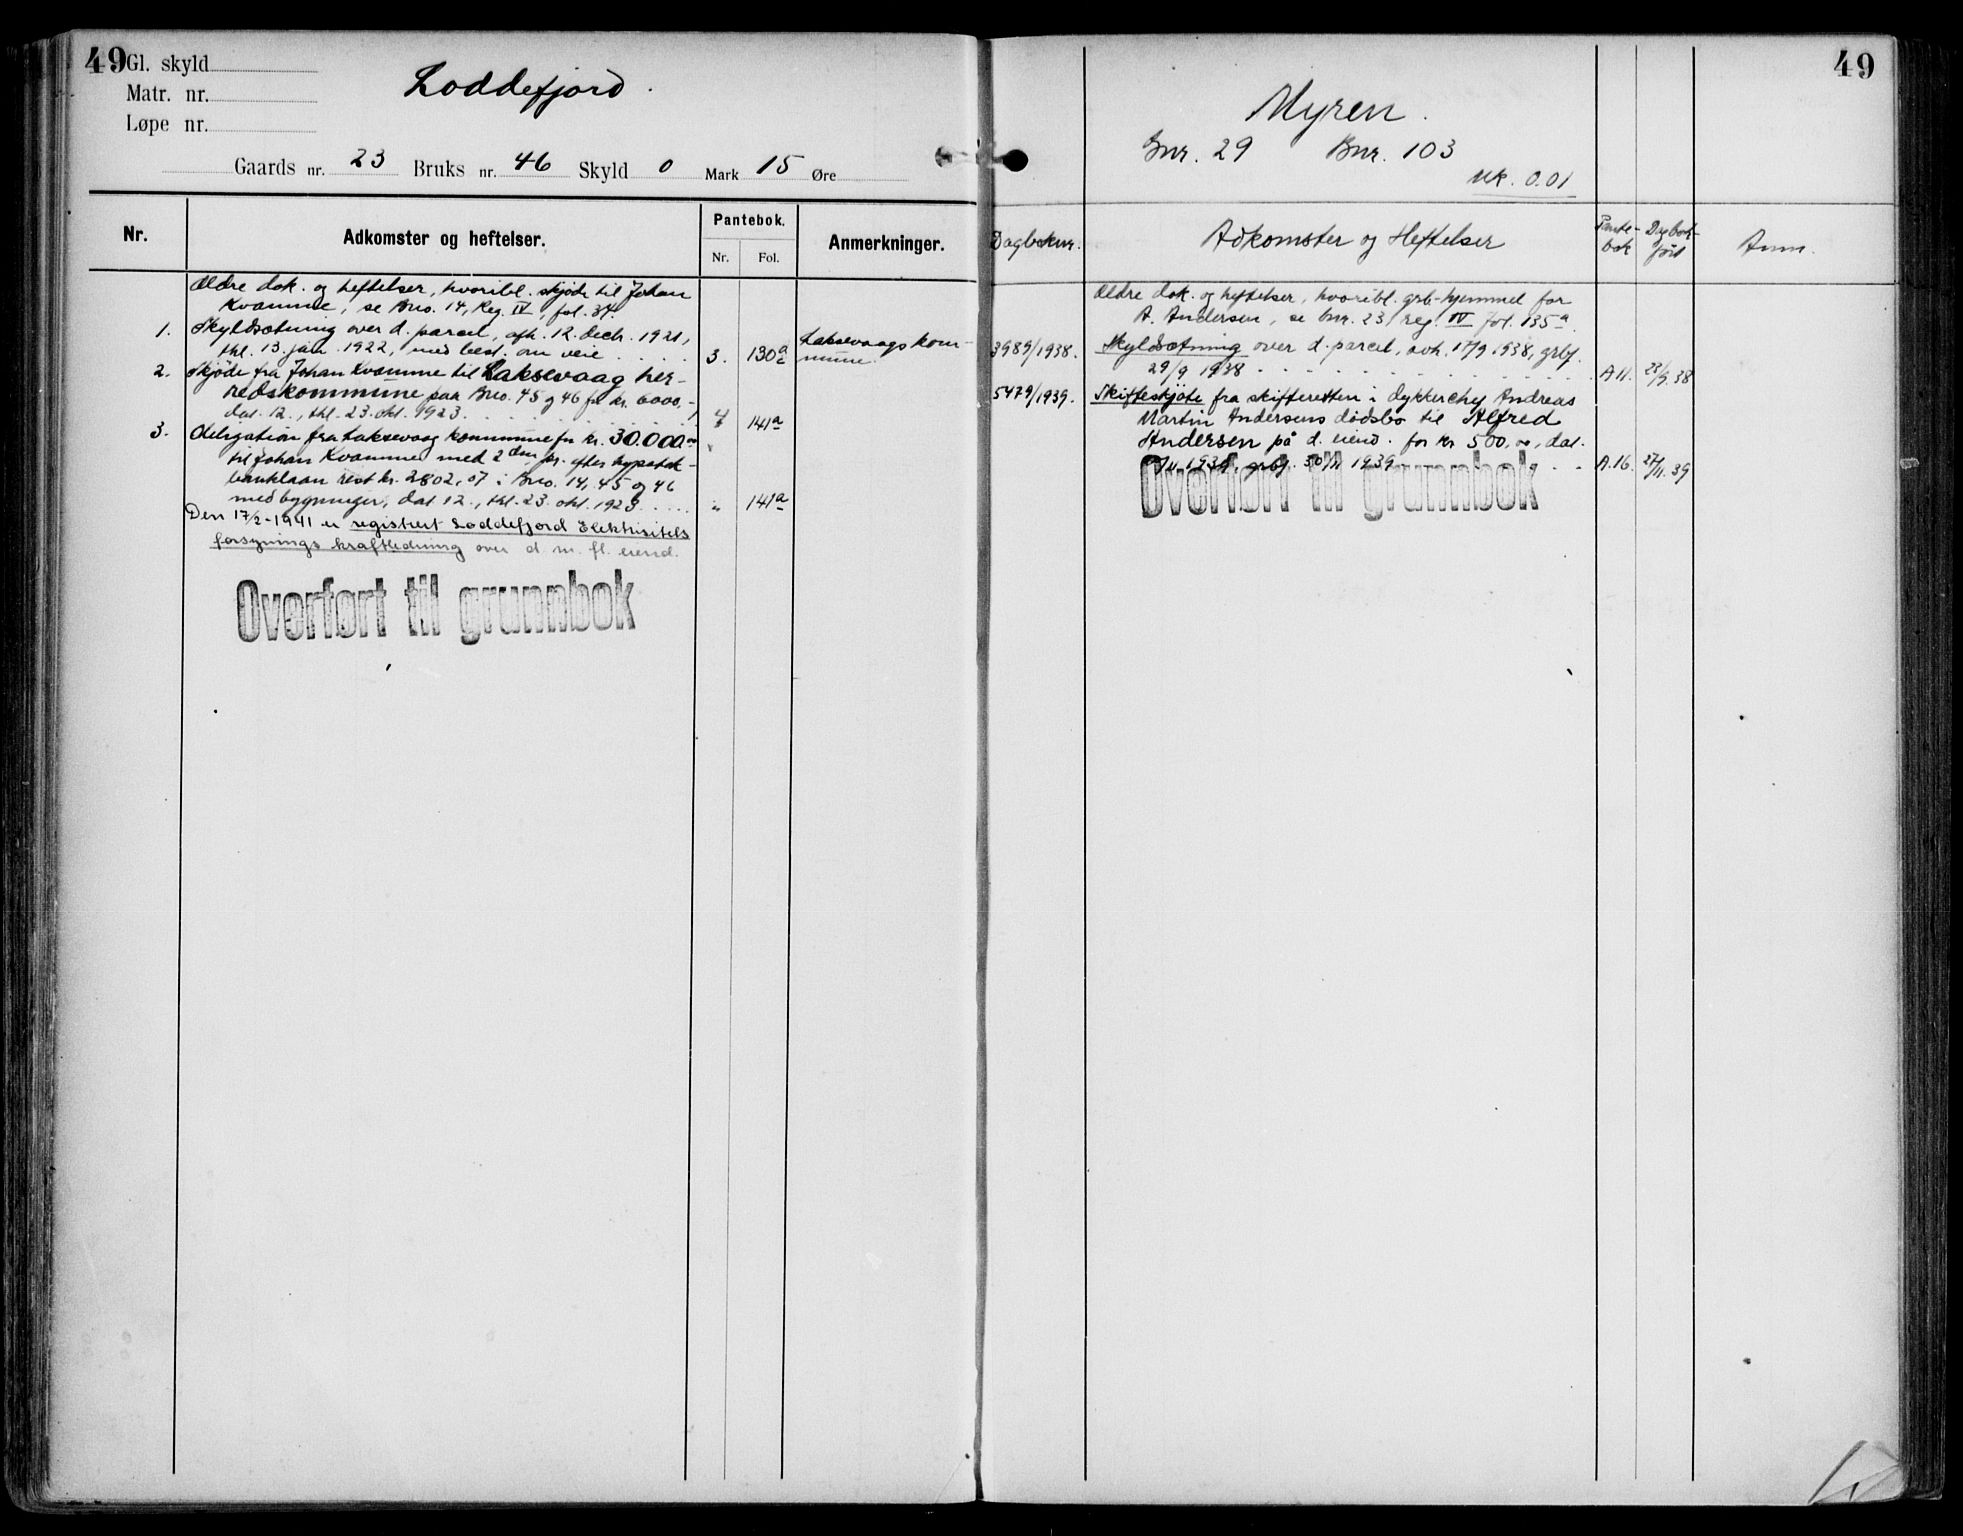 49
Gl. skyld
Matr. nr.
Løpe nr.
Loddefjord.
Gaards nr. 23 Bruks nr. 46 Skyld 0 Mark 15 Øre
Nr.
Adkomster og heftelser.
Pantebok.
Nr. Fol.
Anmerkninger.
Ældre dok. og heftelser, hvoribl. skjøde til Johan
Kvamme, se Bno. 14, Reg. IV, fol. 34.
1. Skyldsætning over d. parcel, afh. 12. decbr. 1921,
thl. 13. jan. 1922, med best. om veie . . . . 3. 130a Laksevaags kom-
mune.
2. Skjøde fra Johan Kvamme til Laksevaag her-
redskommune paa Bno. 45 og 46 for kr. 6000,-
dat. 12., thl. 23. okt. 1923. . . . . . . 4 141a
3. Obligation fra Laksevaag kommune for kr. 30.000
til Johan Kvamme med 2den pr. efter hypotek-
banklaan rest kr. 2802,07 i Bno. 14, 45 og 46
med bygninger, dat 12., thl. 23. okt. 1923 . . . . . " 141a
Den 17/2-1941 er registrert Loddefjord Elektrisitets
forsynings kraftledning over d. m. fl. eiend.
Overført til grunnbok
49
Myren.
Gnr. 29 Bnr. 103
Mk. 0.01
Dagboknr.
Adkomster og Heftelser
Pante-
bok
Dagbok-
ført
Anm.
Ældre dok. og heftelser, hvoribl. grb-hjemmel for
A. Andersen, se bnr. 23, reg. IV fol. 135a.
3989/1938. Skyldsetning over d. parcel, avh. 17/9 1938, grbf.
29/9 1938 . . . . . . . . . A 11. 23/9.38
5479/1939. Skifteskjøte fra skifteretten i dykkerchef Andreas
Martin Andersens dødsbo til Alfred
Andersen på d. eiend. for kr 500,00, dat.
/11 1939, grbf. 30/11 1939 . . . A.16. 27/11.39
Overført til grunnbok